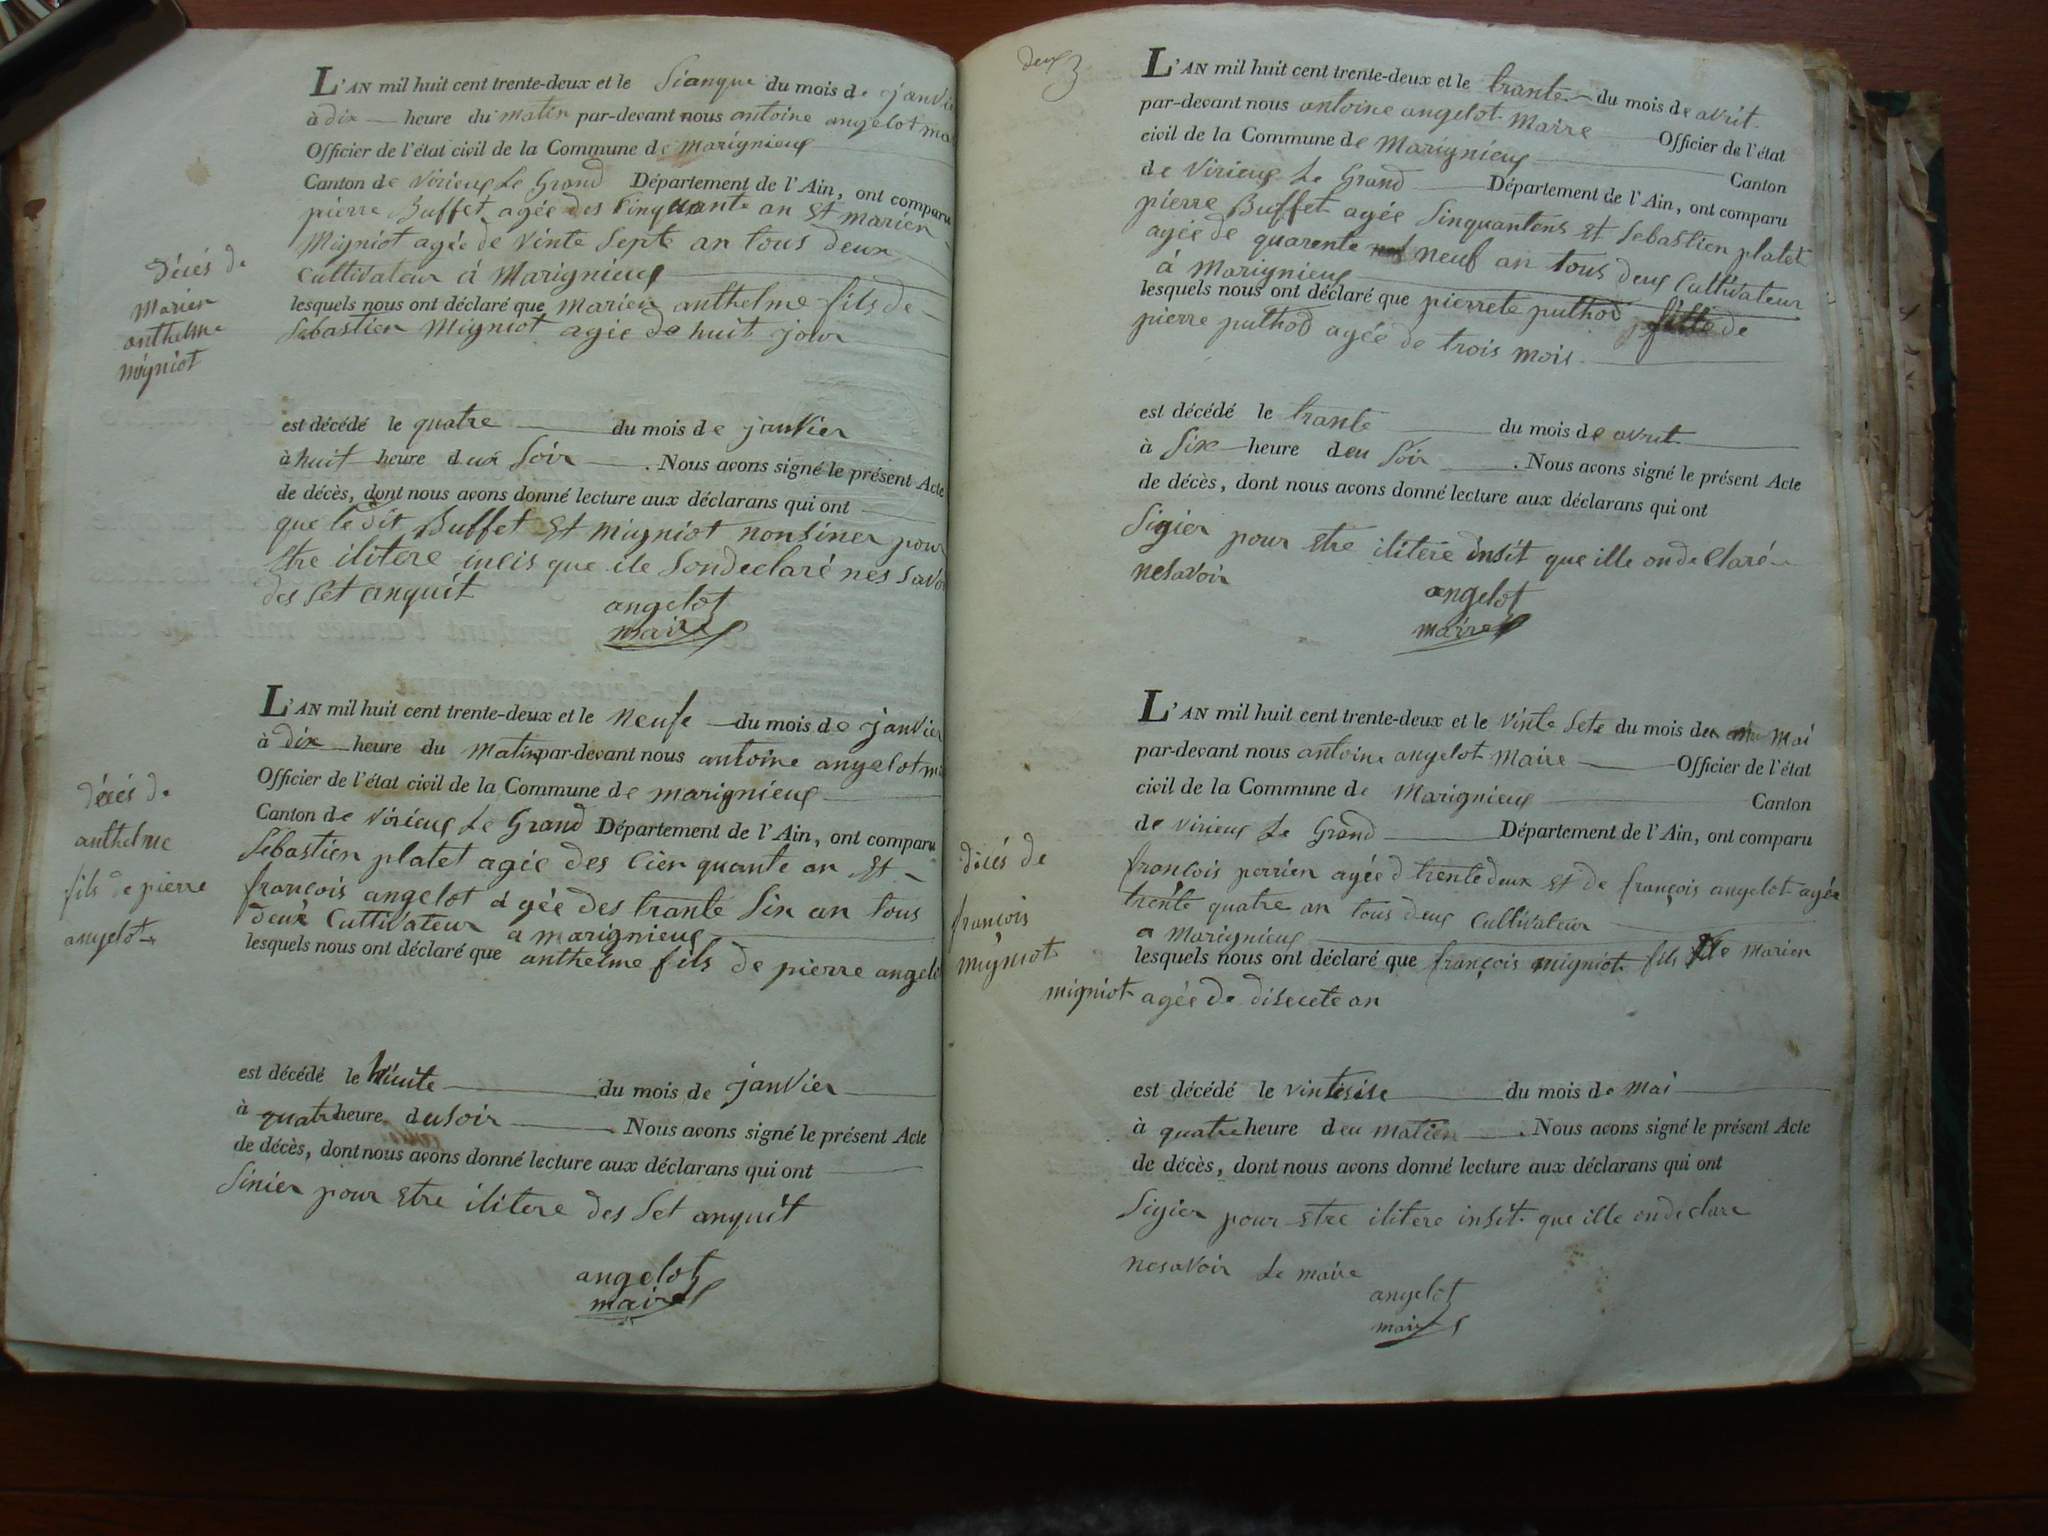 décés de
marien
anthelme
migniot
L'AN mil huit cent trente-deux et le Sianque du mois de janvie
à dix heure du matin par-devant nous antoine angelot ma
Officier de l'état civil de la Commune de marignieux
Canton de virieux Le Grand Département de l'Ain, ont comparu
pierre Buffet agée des Cinquante an Et marien
Migniot agée de vinte Septe an tous deux
Cultivateur à Marignieux
lesquels nous ont déclaré que marien anthelme fils de
Sebastien Migniot agée de huit jour
est décédé le quatre du mois de janvier
à huit heure deux Soir. Nous avons signé le présent Acte
de décès, dont nous avons donné lecture aux déclarans qui ont
que le dit Buffet Et migniot non Siner pour
Etre ilitere que ile Sondeclaré nes Savoi
des Set anquit
angelot
maire
décés de
anthelme
fils de pierre
angelot
L'AN mil huit cent trente-deux et le neufe du mois de janvier
à dix heure du matin par-devant nous antoine angelot m
Officier de l'état civil de la Commune de marignieux
Canton de virieux Le Grand Département de l'Ain, ont comparu
Sebastien platet agée des Cien quante an Et
françois angelot agée des trante Six an tous
deux Cultivateur a marignieux
lesquels nous ont déclaré que anthelme fils de pierre angelo
est décédé le du mois de janvier
à quatre heure du soir. Nous avons signé le présent Acte
de décès, dont nous avons donné lecture aux déclarans qui ont
Sinier pour Etre ilitere des Set anquit
angelot
maire
deux
L'AN mil huit cent trente-deux et le trante du mois de avrit
par-devant nous antoine angelot Maire Officier de l'état
civil de la Commune de Marignieux Canton
de Virieux Le Grand Département de l'Ain, ont comparu
pierre Buffet agée Sinquantens Et Sebastien platet
agée de quarente neuf an tous deux Cultivateur
à Marignieux
lesquels nous ont déclaré que pierrete puthod fille de
pierre puthod agée de trois mois
est décédé le trante du mois de avrit
à Six heure deu Soir. Nous avons signé le présent Acte
de décès, dont nous avons donné lecture aux déclarans qui ont
Sigier pour Etre ilitere insit que ille on de Claré
nesavoir
angelot
maire
décés de
françois
migniot
L'AN mil huit cent trente-deux et le vinte Sete du mois deu mai
par-devant nous antoine angelot Maire Officier de l'état
civil de la Commune de Marignieux Canton
de virieux Le Grand Département de l'Ain, ont comparu
françois perrien agée d trente deux Et de françois angelot agée
trente quatre an tous deux Cultivateur
a Marignieux
lesquels nous ont déclaré que françois migniot fils de Marien
migniot agée de disecete an
est décédé le vintesise du mois de mai
à quatre heure deu matien. Nous avons signé le présent Acte
de décès, dont nous avons donné lecture aux déclarans qui ont
Sigier pour Etre ilitere insit que ille on declare
nesavoir Le maire
angelot
maire